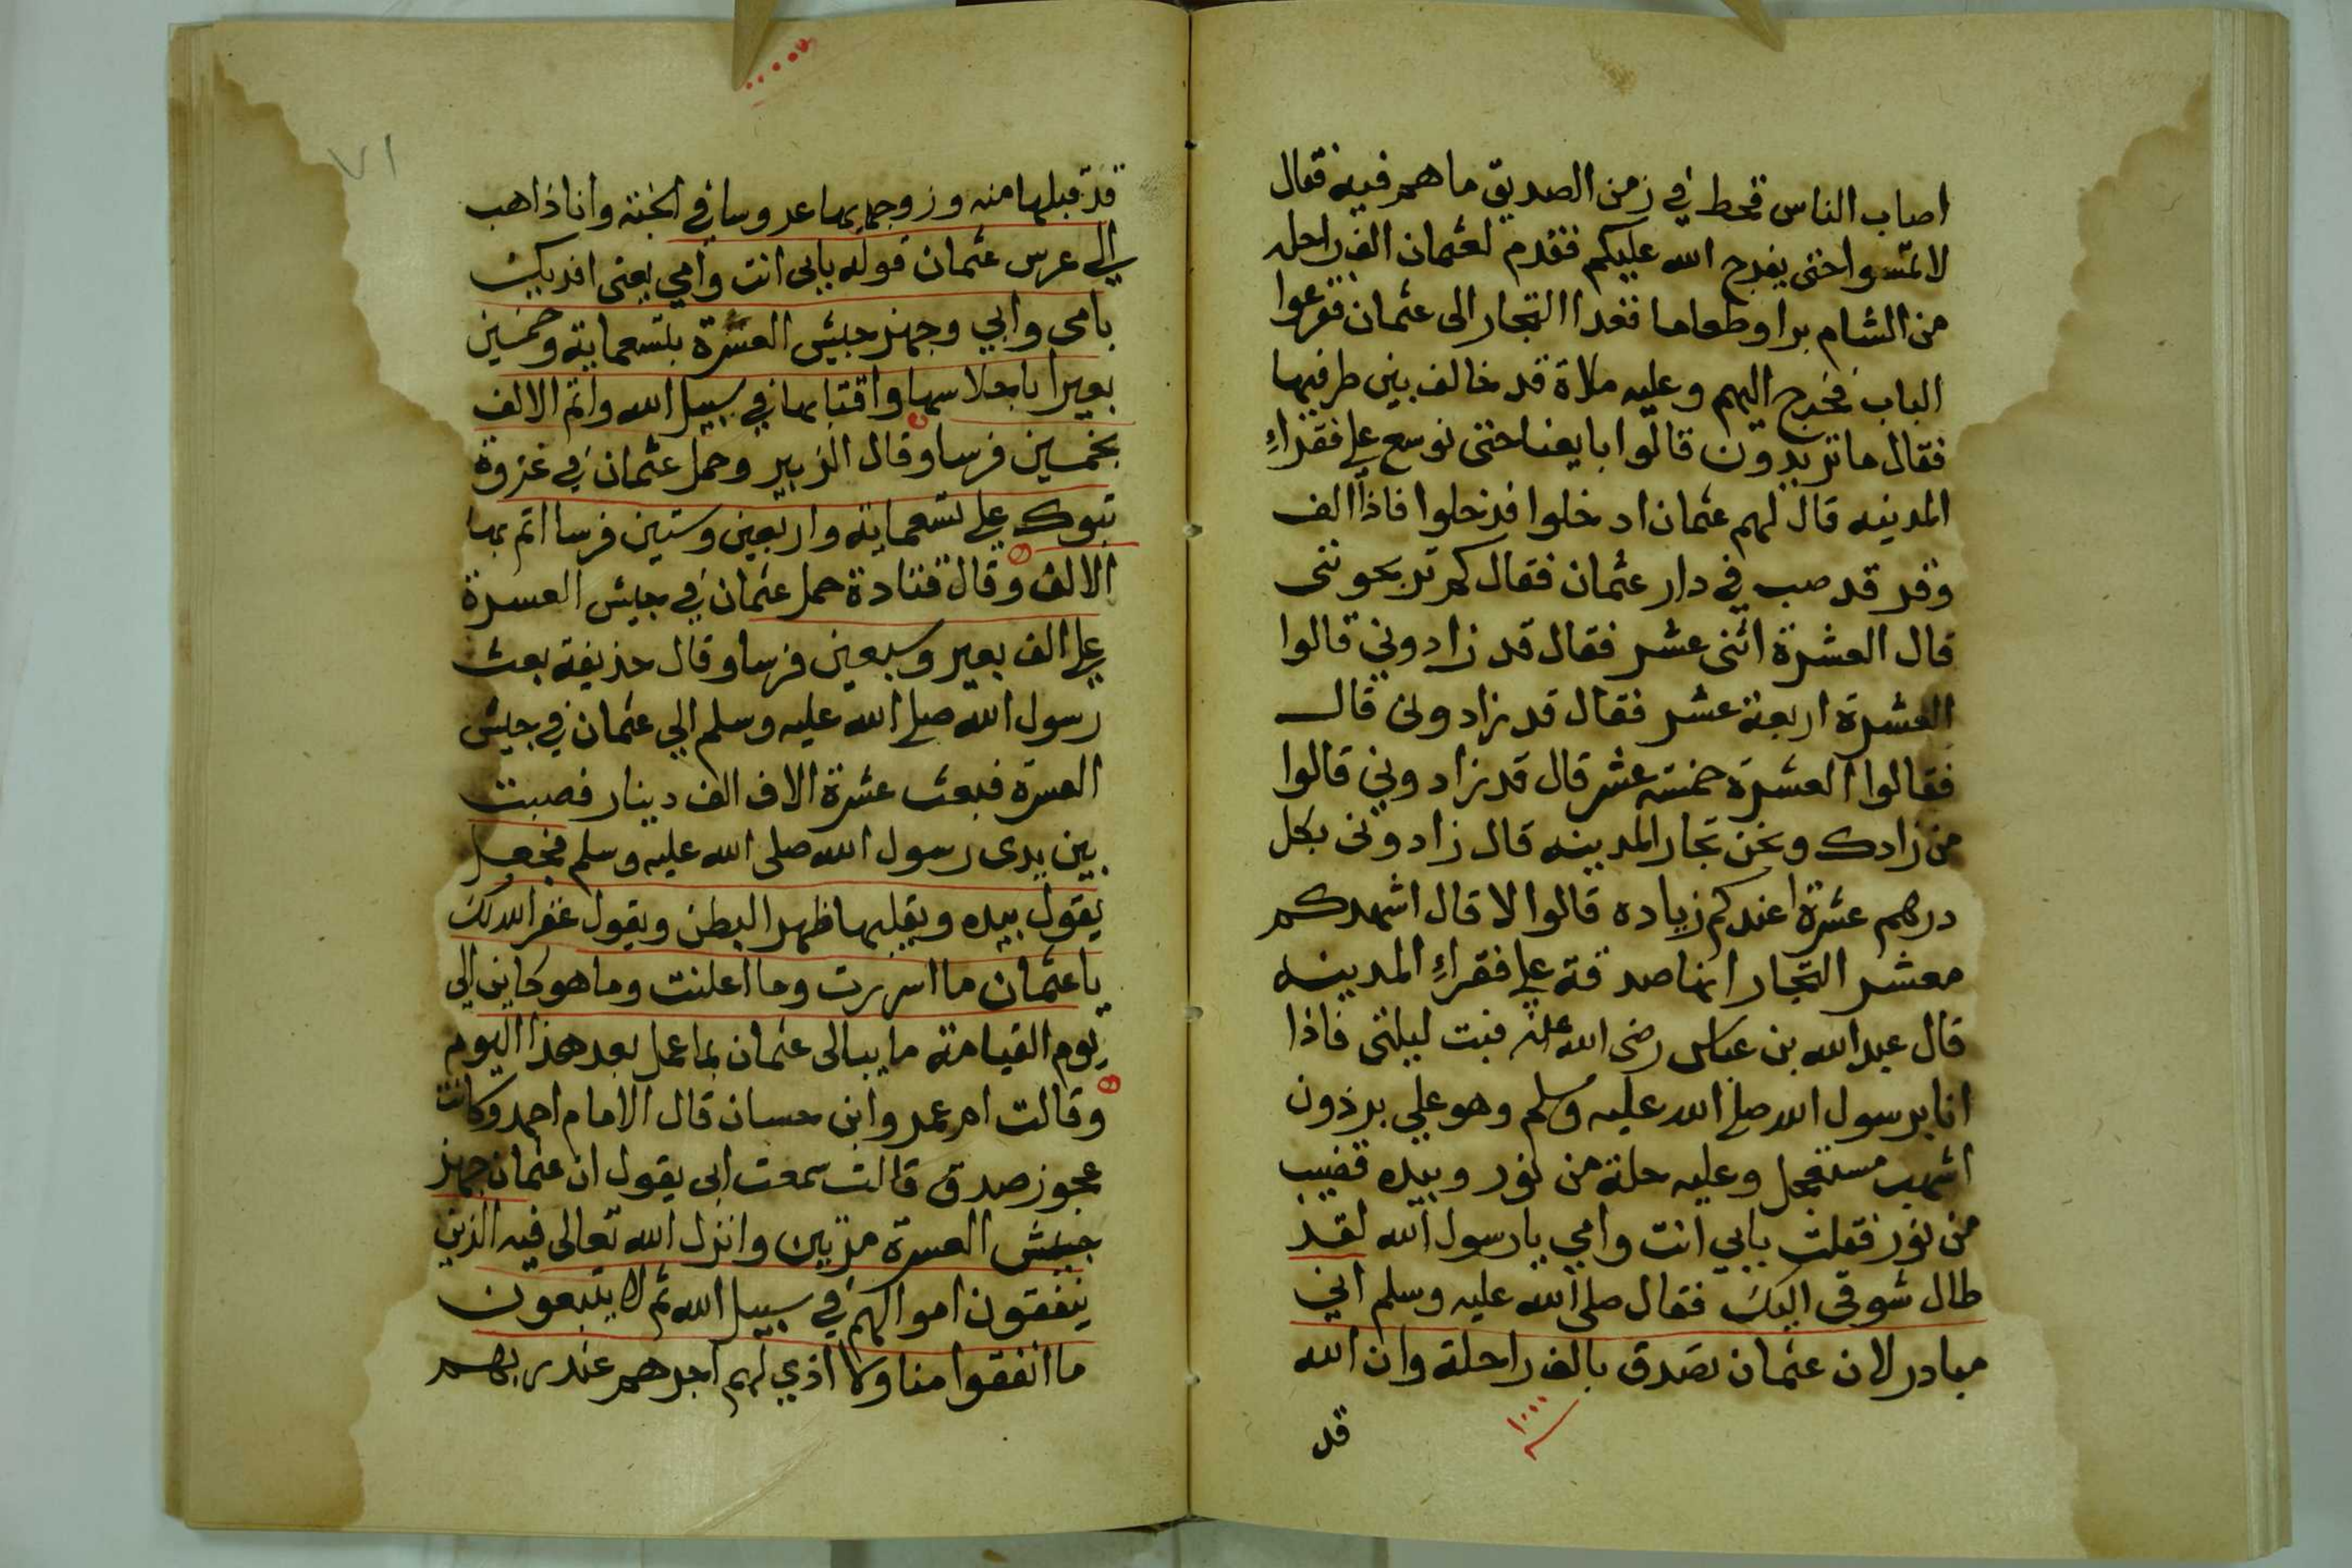 اصاب الناس قحط في زمن الصديق ما هم فيه فقال
لا تمسوا حتى يفرج الله عليكم فقدم لعثمان الف راحله
من الشام برا وطعاما فغدا التجار الى عثمان فقرعوا
الباب فخرج اليهم وعليه ملاة قد خالف بين طرفيها
فقال ما تريدون قالوا بايعنا حتى نوسع على فقراءِ
المدينه قال لهم عثمان ادخلوا فدخلوا فاذا الف
وقد قد صب في دار عثمان فقال كم تربحونني
قال العشرة اثنى عشر فقال قد زادوني قالوا
العشرة اربعة عشر فقال قد زادوني قال
فقالوا العشرة خمسة عشر قال قد زادوني قالوا
من زادك ونحن تجار المدينه قال زادوني بكل
درهم عشرة اعندكم زياده قالوا لا قال اشهدكم
معشر التجار انها صدقة على فقراءِ المدينه
قال عبد الله بن عباس رضى الله عنه فبت ليلتى فاذا
انا برسول الله صلى الله عليه وسلم وهو على برذون
اشهب مستعجل وعليه حلة من نور وبيده قضيب
من نور فقلت بابي انت وامي يا رسول الله لقد
طال شوقى اليك فقال صلى الله عليه وسلم اني
مبادر لان عثمان تصدق بالف راحلة وان الله
قد
٧١
قد قبلها منه وزوجه بها عروسا في الجنة وانا ذاهب
الى عرس عثمان قوله بابى انت وامي يعنى افديك
بامى وابي وجهز جيش العسرة بتسعماية وخمسين
بعيرا باحلاسها واقتابها في سبيل الله واتم الالف
بخمسين فرسا وقال الزبير وحمل عثمان في غزوة
تبوك على تسعماية واربعين وستين فرسا اتم بها
الالف وقال قتادة حمل عثمان في جيش العسرة
على الف بعير وسبعين فرسا وقال حذيفة بعث
رسول الله صلى الله عليه وسلم الى عثمان في جيش
العسرة فبعث عشرة الاف الف دينار فصبت
بين يدى رسول الله صلى الله عليه وسلم فجعل
يقول بيده ويقلبها ظهرا لبطن ويقول غفر الله لك
يا عثمان ما اسررت وما اعلنت وما هو كاين الى
يوم القيامة ما يبالى عثمان بما عمل بعد هذا اليوم
وقالت ام عمرو ابن حسان قال الامام احمد وكانت
عجوز صدق قالت سمعت ابى يقول ان عثمان جهز
جيش العسرة مرتين وانزل الله تعالى فيه الذين
ينفقون اموالهم في سبيل الله ثم لا يتبعون
ما انفقوا منا ولا اذي لهم اجرهم عند ربهم